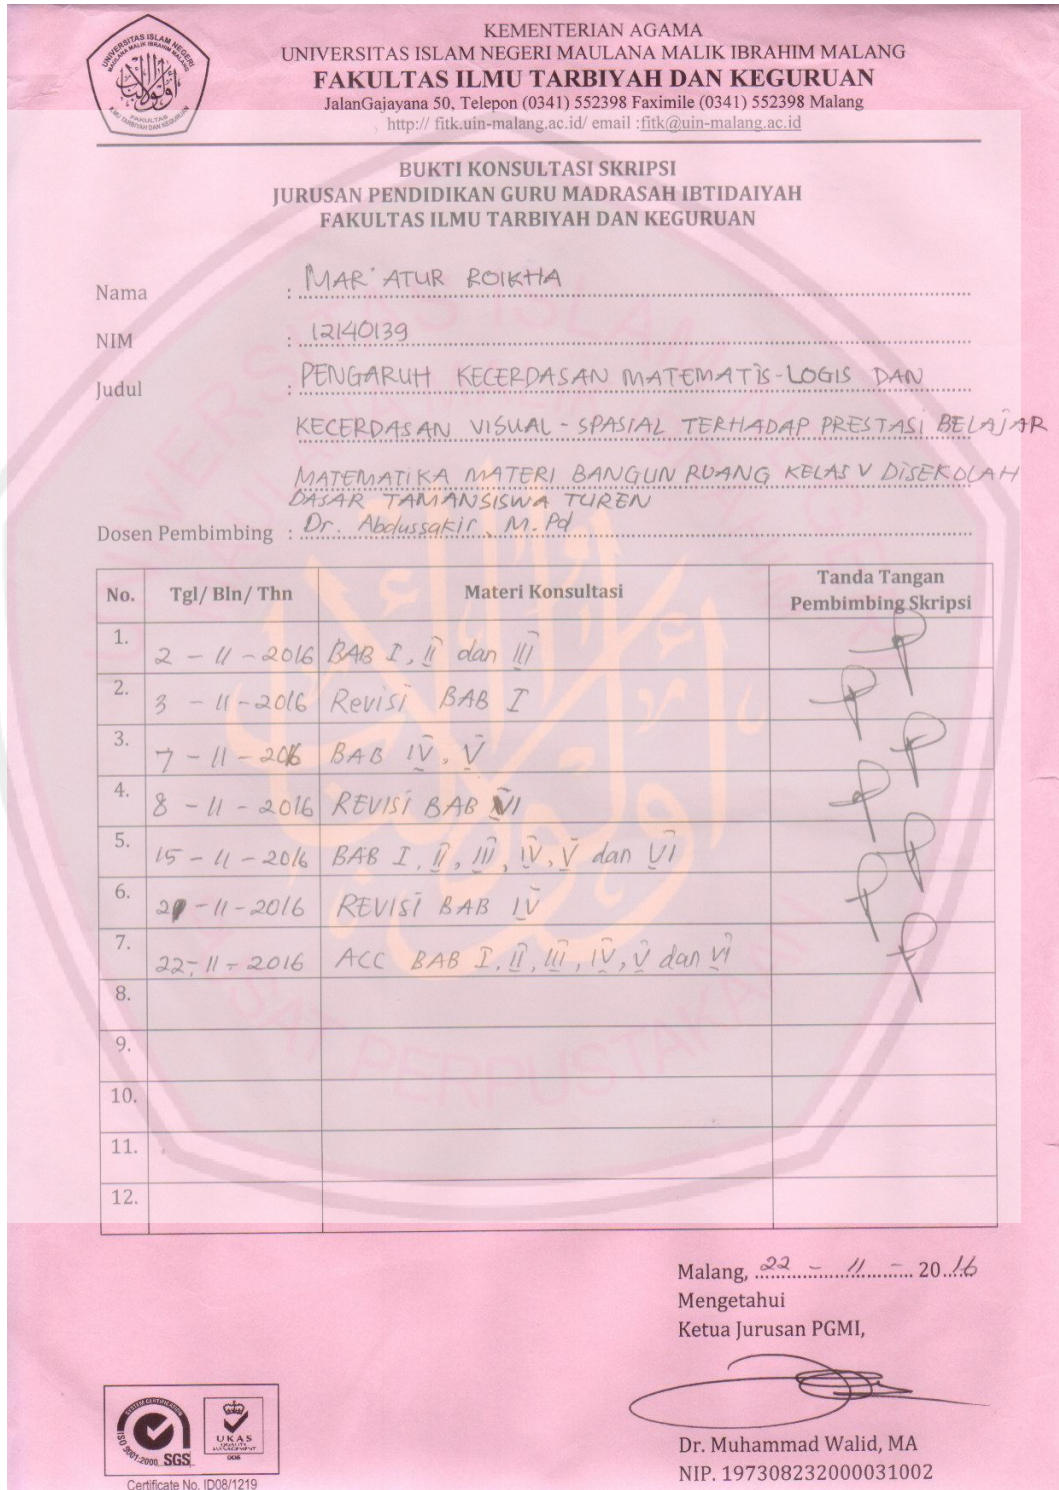 KEMENTERIAN AGAMA
UNIVERSITAS ISLAM NEGERI MAULANA MALIK IBRAHIM MALANG
FAKULTAS ILMU TARBIYAH DAN KEGURUAN
JalanGajayana 50, Telepon (0341) 552398 Faximile (0341) 552398 Malang
http:// fitk.uin-malang.ac.id/ email :fitk@uin-malang.ac.id
BUKTI KONSULTASI SKRIPSI
JURUSAN PENDIDIKAN GURU MADRASAH IBTIDAIYAH
FAKULTAS ILMU TARBIYAH DAN KEGURUAN
Nama : MAR'ATUR ROIKHA
NIM : 12140139
Judul : PENGARUH KECERDASAN MATEMATIS-LOGIS DAN
KECERDASAN VISUAL - SPASIAL TERHADAP PRESTASI BELAJAR
MATEMATIKA MATERI BANGUN RUANG KELAS V DISEKOLAH
DASAR TAMANSISWA TUREN
Dosen Pembimbing : Dr. Abdussakir, M.Pd
No. Tgl/ Bln/ Thn Materi Konsultasi Tanda Tangan Pembimbing Skripsi
1. 2 - 11 - 2016 BAB I, II dan III
2. 3 - 11 - 2016 Revisi BAB I
3. 7 - 11 - 2016 BAB IV, V
4. 8 - 11 - 2016 REVISI BAB VI
5. 15 - 11 - 2016 BAB I, II, III, IV, V dan VI
6. -11-2016 REVISI BAB IV
7. 22-11-2016 ACC BAB I, II, III, IV, V dan VI
8.
9.
10.
11.
12.
Malang, 22 - 11 - 2016
Mengetahui
Ketua Jurusan PGMI,
Dr. Muhammad Walid, MA
NIP. 197308232000031002
SYSTEM CERTIFICATION
ISO 9001:2000 SGS
UKAS
QUALITY
MANAGEMENT
005
Certificate No. ID08/1219